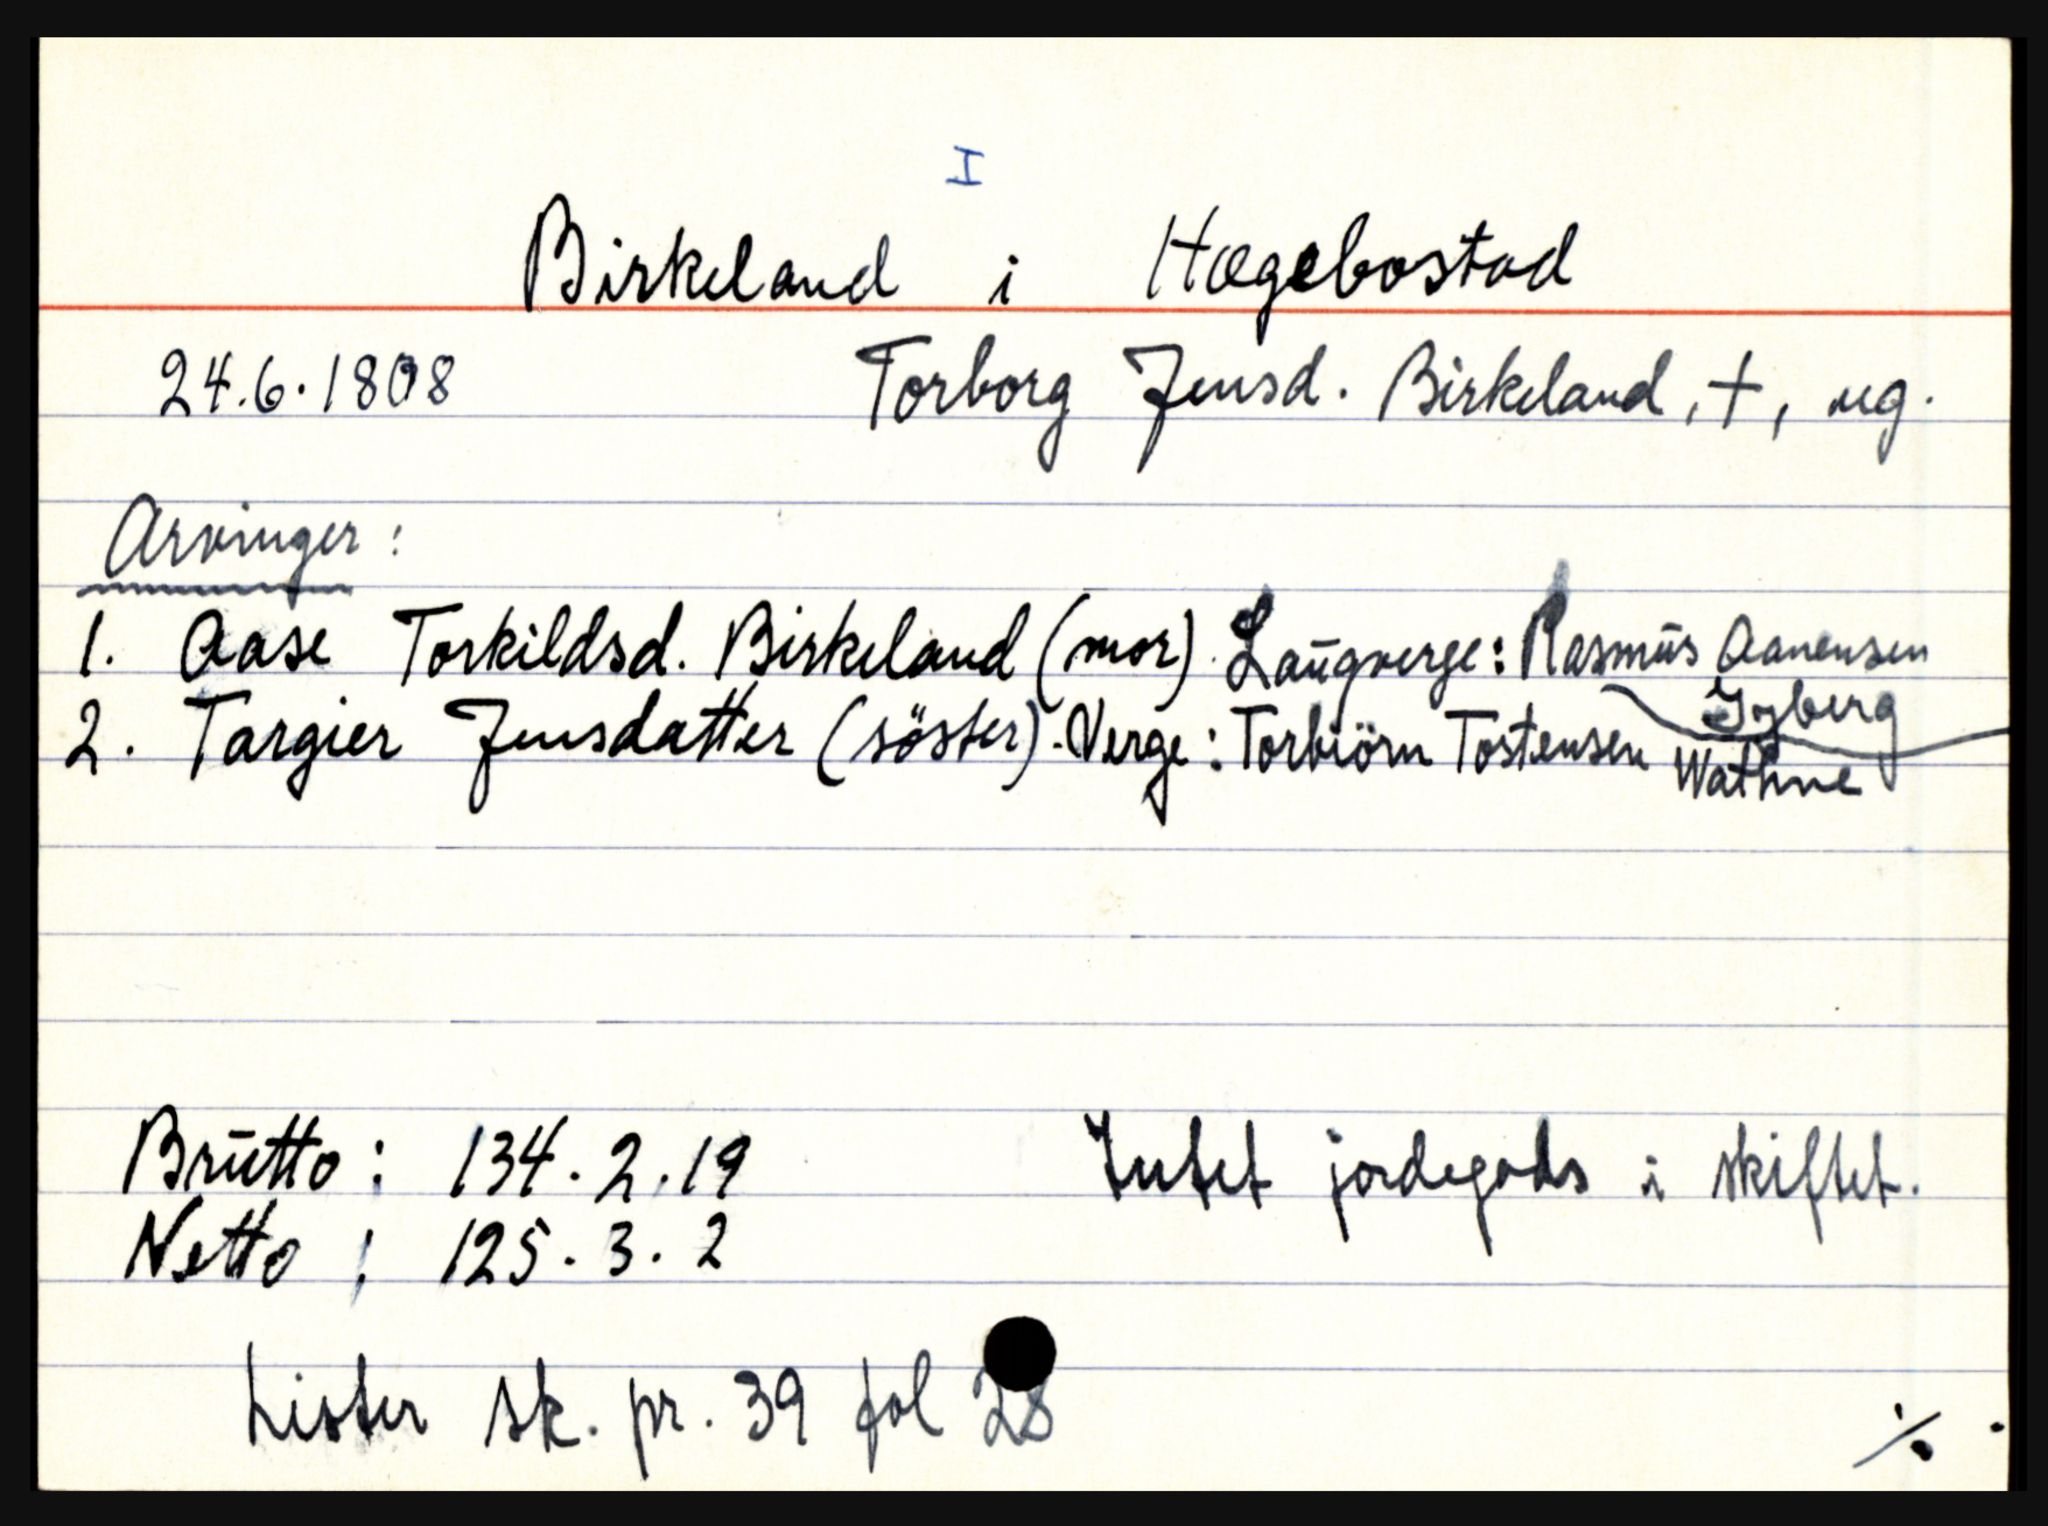 I
Birkeland i Hægebostad
24.6.1808 Torborg Jensd. Birkeland, †, ug.
Arvinger:
1. Aase Torkildsd. Birkeland (mor). Laugverge: Rasmus Aanensen
Gyberg
2. Targier Jensdatter (söster). Verge: Torbiörn Tostensen
Wathne
Brutto: 134.2.19 Intet jordegods i skiftet.
Netto: 125.3.2
Lister sk. pr. 39 fol 28